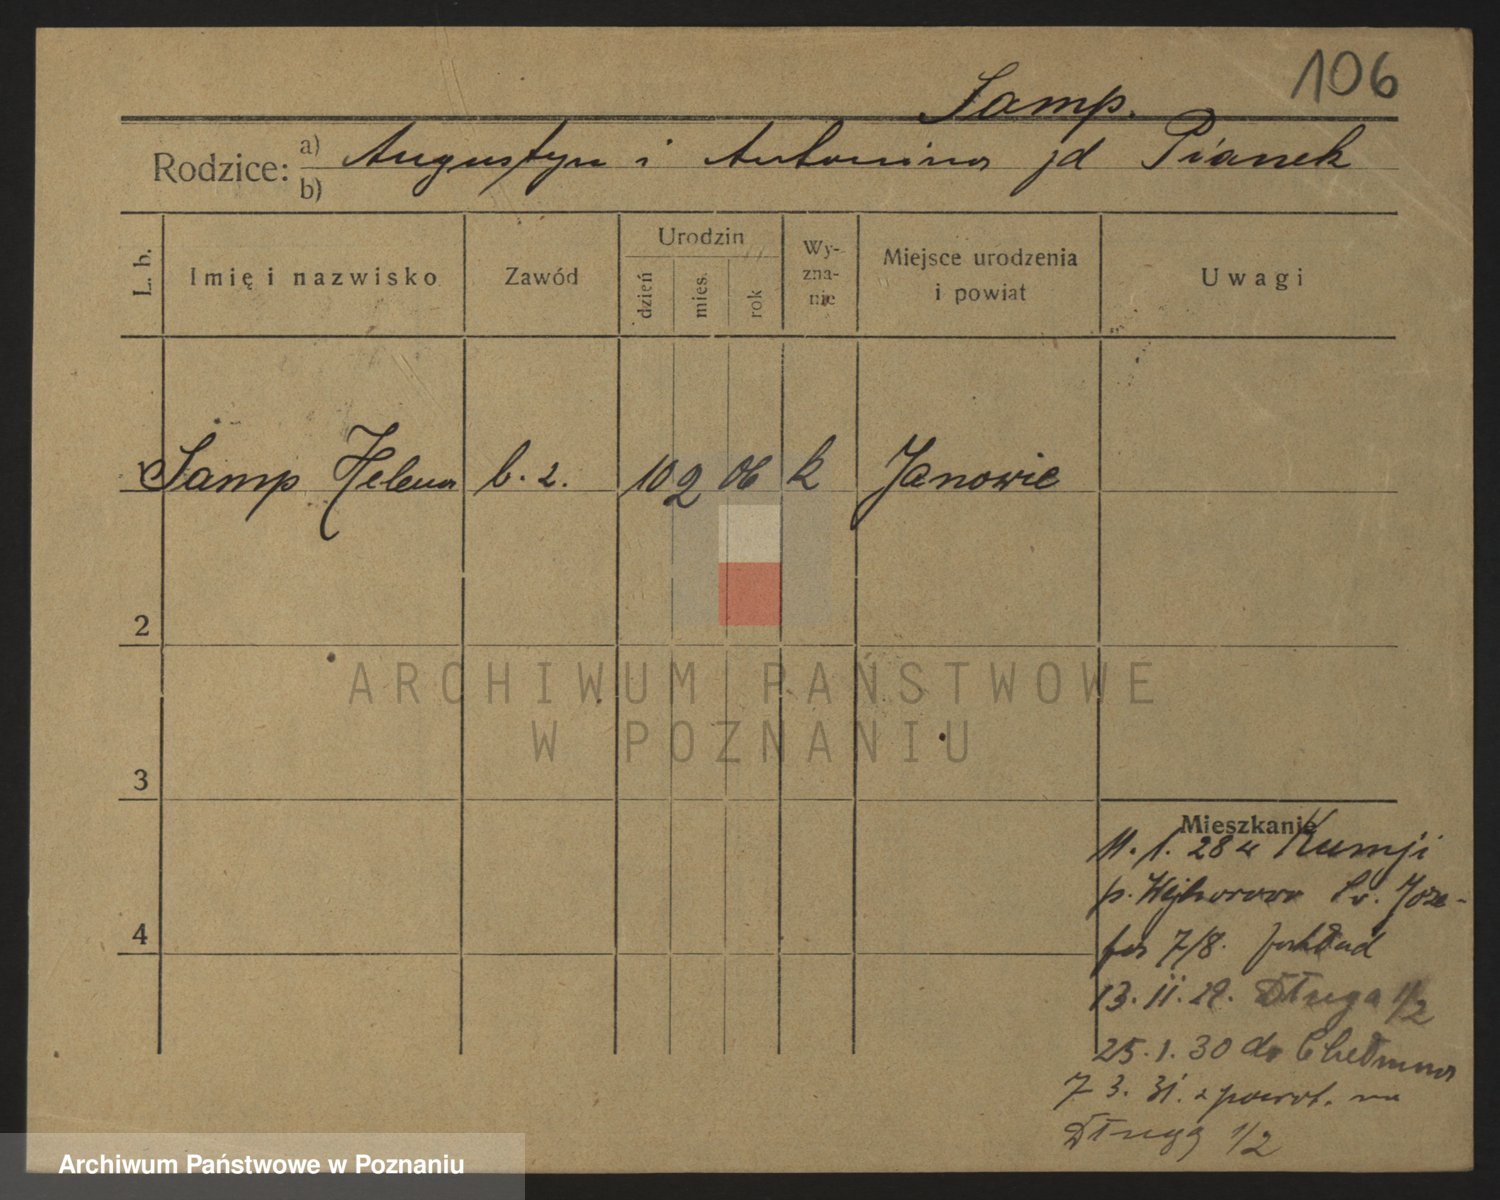 106
Samp.
Rodzice: a) Augustyn i Antonina jd Pianek
b)
L. b.
Imię i nazwisko
Zawód
Urodzin
dzień
mies.
rok
Wy-
zna-
nie
Miejsce urodzenia
i powiat
Uwagi
1 Samp Helena b. z. 10 2 06 k Janowie
2
3
4
Mieszkanie
11. 1. 28 z Rumji
p. Wejherowo Św. Józe-
fa 7/8. zakład
13. II. 29. Długa 1/2
25. 1. 30 do Chełmna
7 3. 31. z powrot. na
Długą 1/2
ARCHIWUM PAŃSTWOWE
W POZNANIU
Archiwum Państwowe w Poznaniu